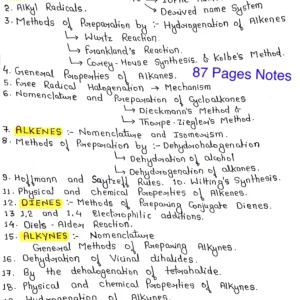 ↳ Derived name System
2. Alkyl Radicals.
3. Methods of Preparation by :- Hydrogenation of Alkenes
↳ Wurtz Reaction.
↳ Frankland's Reaction.
↳ Corey-House Synthesis. & Kolbe's Method.
4. General Properties of Alkanes.
87 Pages Notes
5. Free Radical Halogenation → Mechanism
6. Nomenclature and Preparation of Cycloalkanes
↳ Dieckmann's Method &
↳ Thorpe-Ziegler's Method.
7. ALKENES :- Nomenclature and Isomerism.
8. Methods of Preparation by :- Dehydrohalogenation
↳ Dehydration of Alcohol
↳ Dehydrogenation of alkanes.
9. Hoffmann and Saytzeff Rules. 10. Witting's Synthesis.
11. Physical and chemical Properties of Alkenes.
12. DIENES :- Methods of Preparing Conjugate Dienes.
13 1,2 and 1,4 Electrophilic additions.
14. Diels-Alder Reaction.
15. ALKYNES :- Nomenclature
General Methods of Preparing Alkynes.
16. Dehydration of Vicinal dihalides.
17. By the dehalogenation of tetrahalide.
18. Physical and chemical Properties of Alkynes.
Hydrogenation of Alkynes.